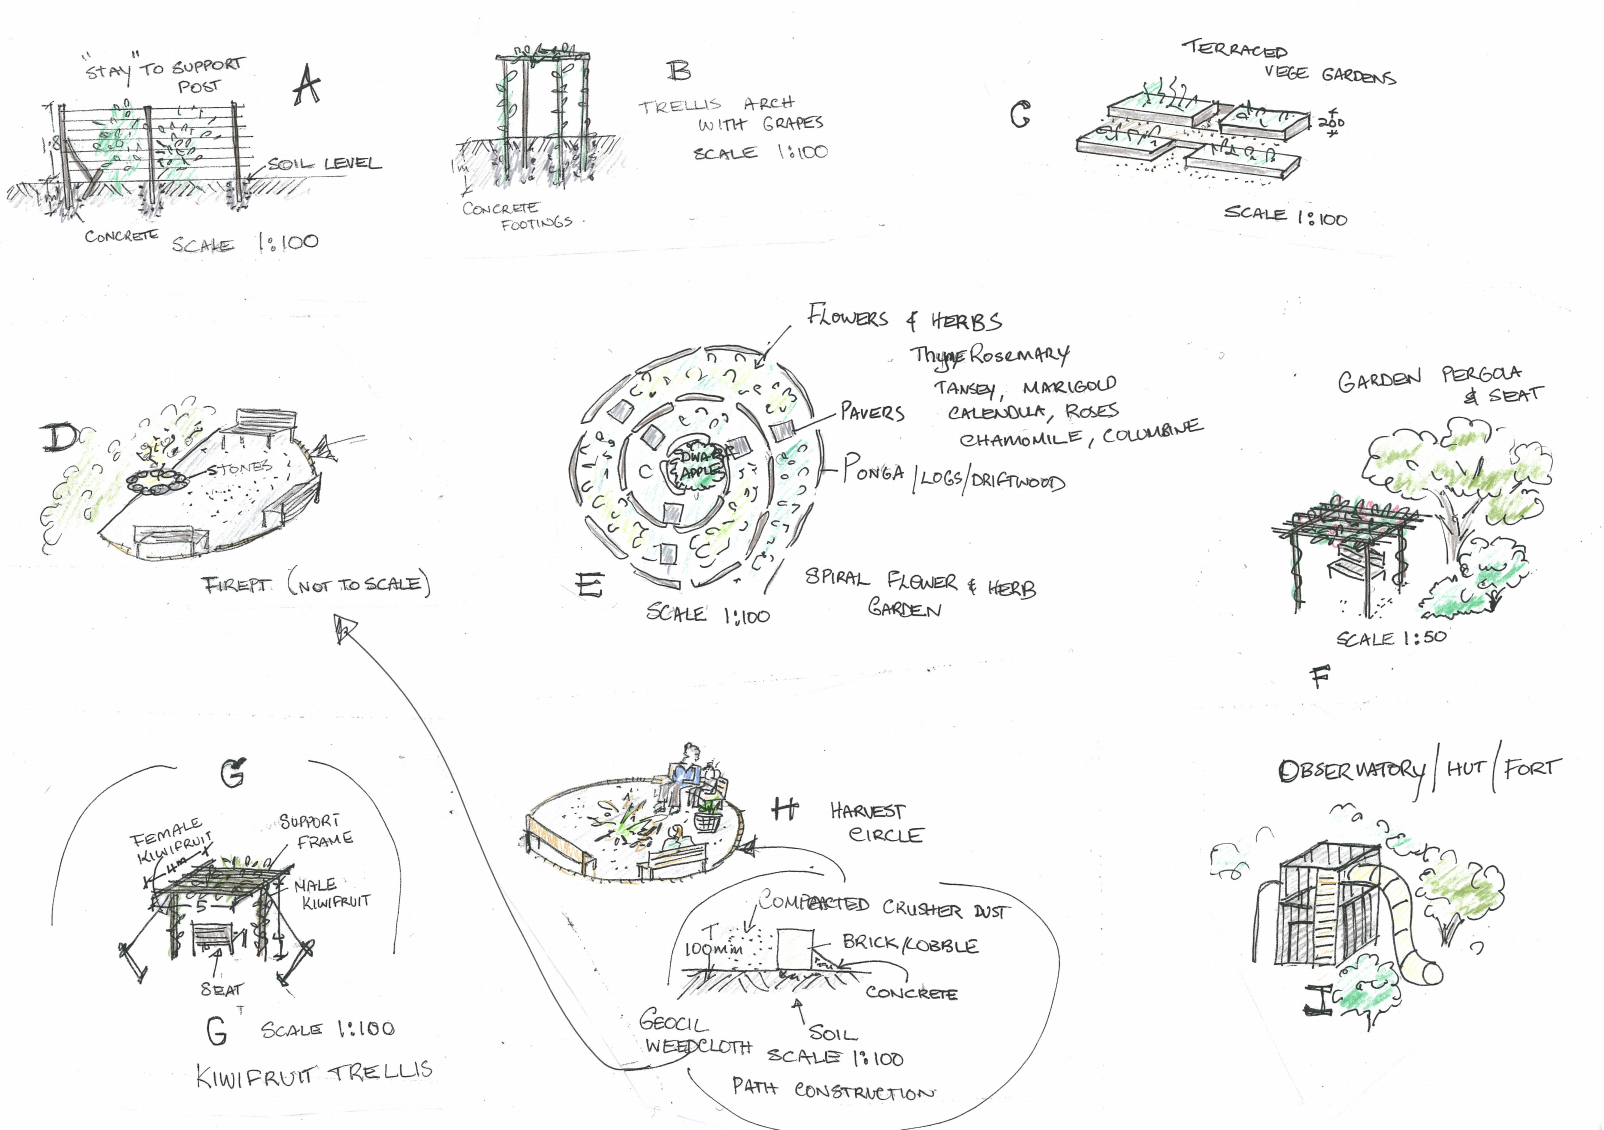 "STAY" TO SUPPORT
POST
A
1.8
SOIL LEVEL
CONCRETE
SCALE 1:100
B
TRELLIS ARCH
WITH GRAPES
SCALE 1:100
1m
CONCRETE
FOOTINGS.
C
TERRACED
VEGE GARDENS
200
SCALE 1:100
D
STONES
FIREPT (NOT TO SCALE)
FLOWERS & HERBS
Thyme Rosemary
TANSEY, MARIGOLD
CALENDULA, ROSES
CHAMOMILE, COLUMBINE
PAVERS
PONGA/LOGS/DRIFTWOOD
DWARF
APPLE
E
SCALE 1:100
SPIRAL FLOWER & HERB
GARDEN
GARDEN PERGOLA
& SEAT
SCALE 1:50
F
G
FEMALE
KIWIFRUIT
4m
SUPPORT
FRAME
MALE
KIWIFRUIT
5
SEAT
G SCALE 1:100
KIWIFRUIT TRELLIS
H HARVEST
CIRCLE
COMPACTED CRUSHER DUST
100mm
BRICK/COBBLE
CONCRETE
GEOCIL
WEEDCLOTH
SOIL
SCALE 1:100
PATH CONSTRUCTION
OBSERVATORY/HUT/FORT
I